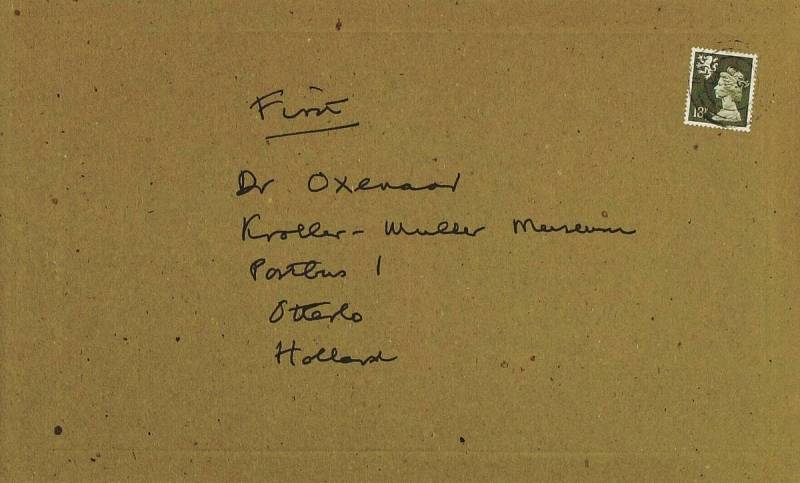 First
18P
Dr Oxenaar
Kroller-Muller Museum
Postbus 1
Otterlo
Holland